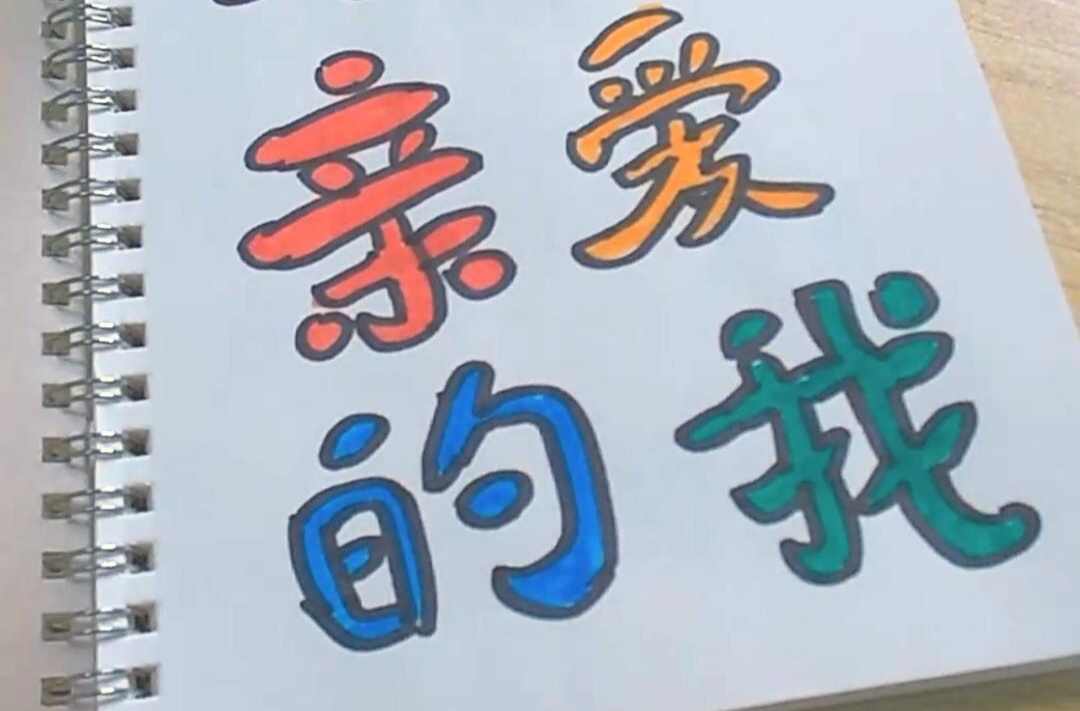 亲爱
的我